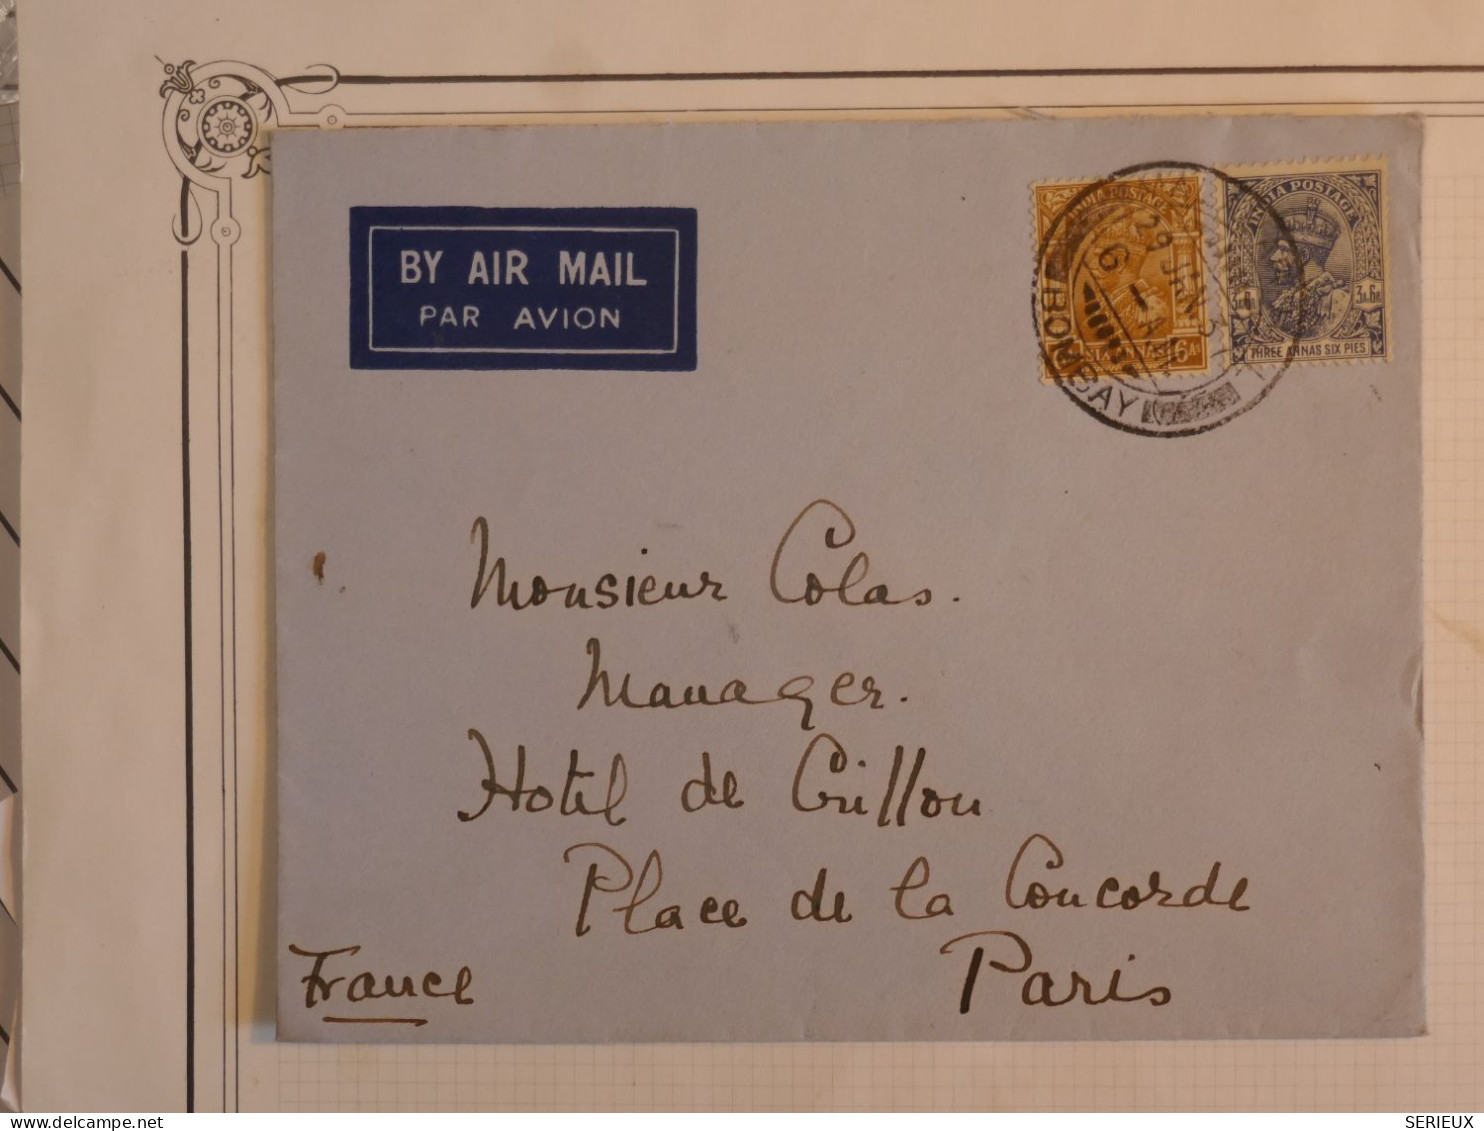 BY AIR MAIL
PAR AVION
INDIA POSTAGE
6As
BOMBAY
29 JAN 37
6 - AM
INDIA POSTAGE
3A.6P
THREE ANNAS SIX PIES
Monsieur Colas.
Manager.
Hotel de Crillon
Place de la Concorde
Paris
France
SERIEUX